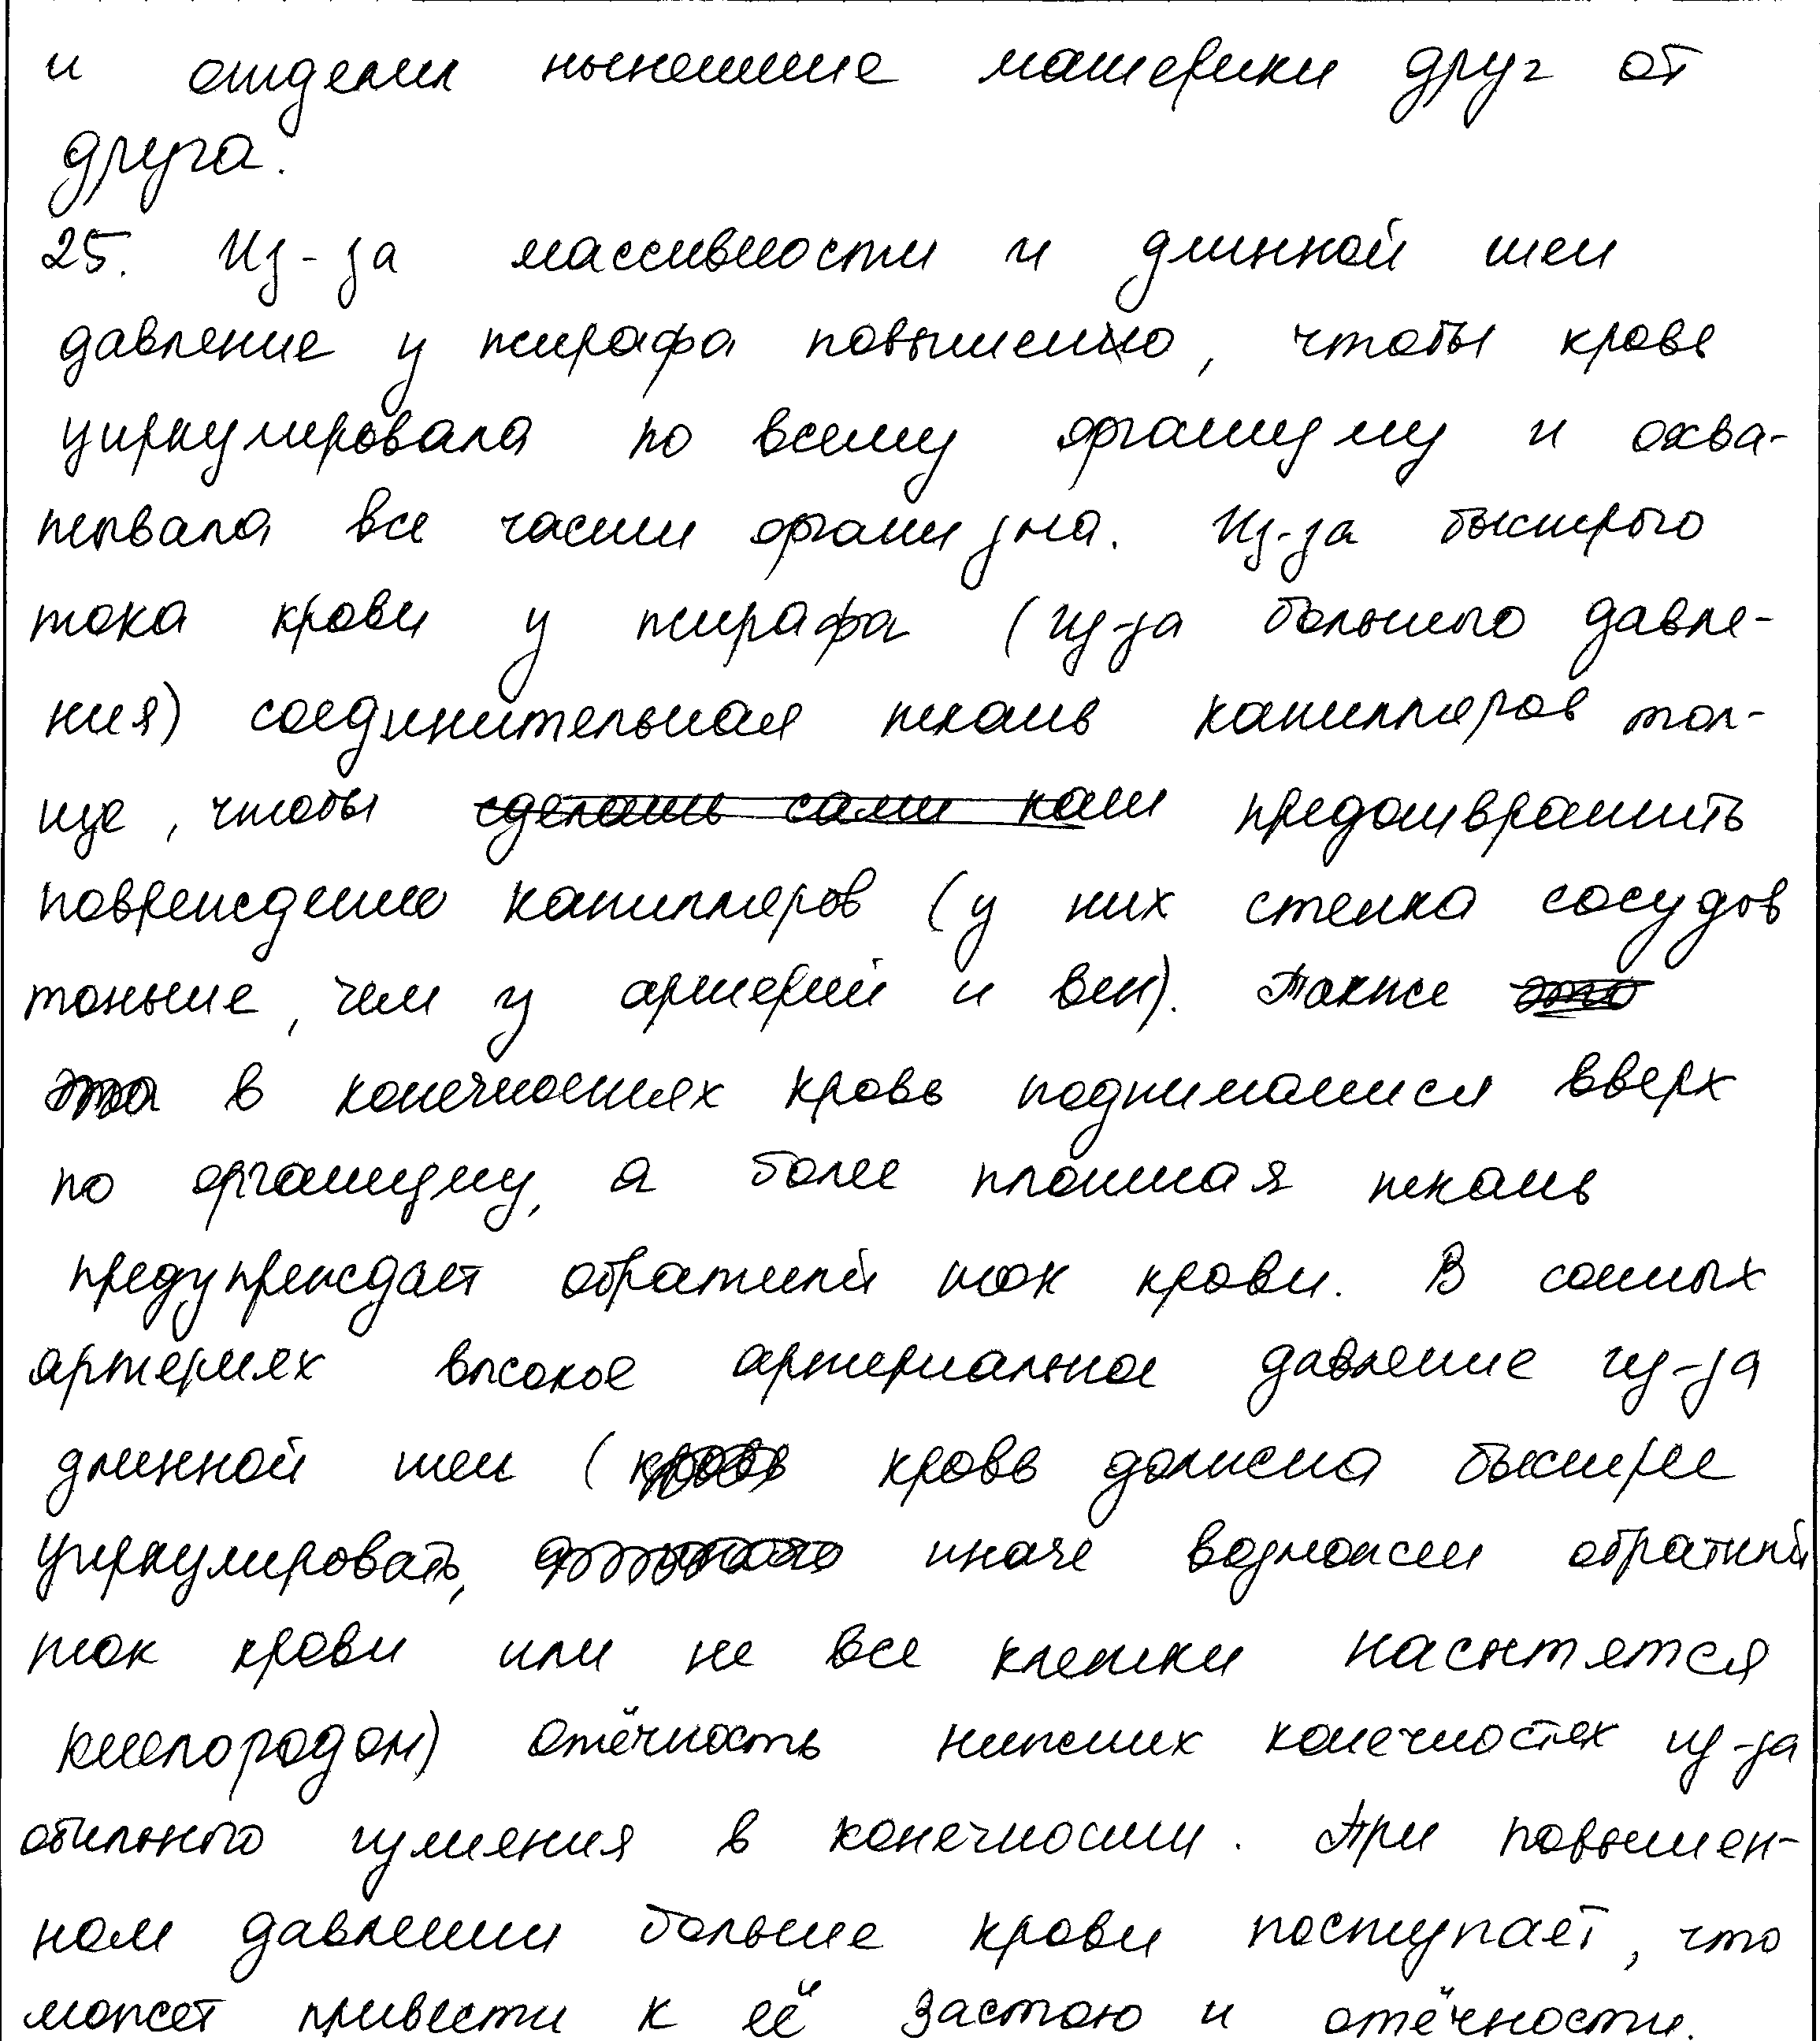 и отделил нынешние материки друг от
друга.
25. Из-за массивности и длинной шеи
давление у жирафа повышено, чтобы кровь
циркулировала по всему организму и охва-
тывала все части организма. Из-за быстрого
тока крови у жирафа (из-за большого давле-
ния) соединительная ткань капилляров тол-
ще, чтобы предотвратить
повреждение капилляров (у них стенка сосудов
тоньше, чем у артерий и вен). Также
в конечностях кровь поднимается вверх
по организму, а более плотная ткань
предупреждает обратный ток крови. В сонных
артериях высокое артериальное давление из-за
длинной шеи (кровь должна быстрее
циркулировать, иначе возможен обратный
ток крови или не все клетки насытятся
кислородом) отёчность нижних конечностех из-за
обильного в конечности. При повышен-
ном давлении больше крови поступает, что
может привести к её застою и отёчности.